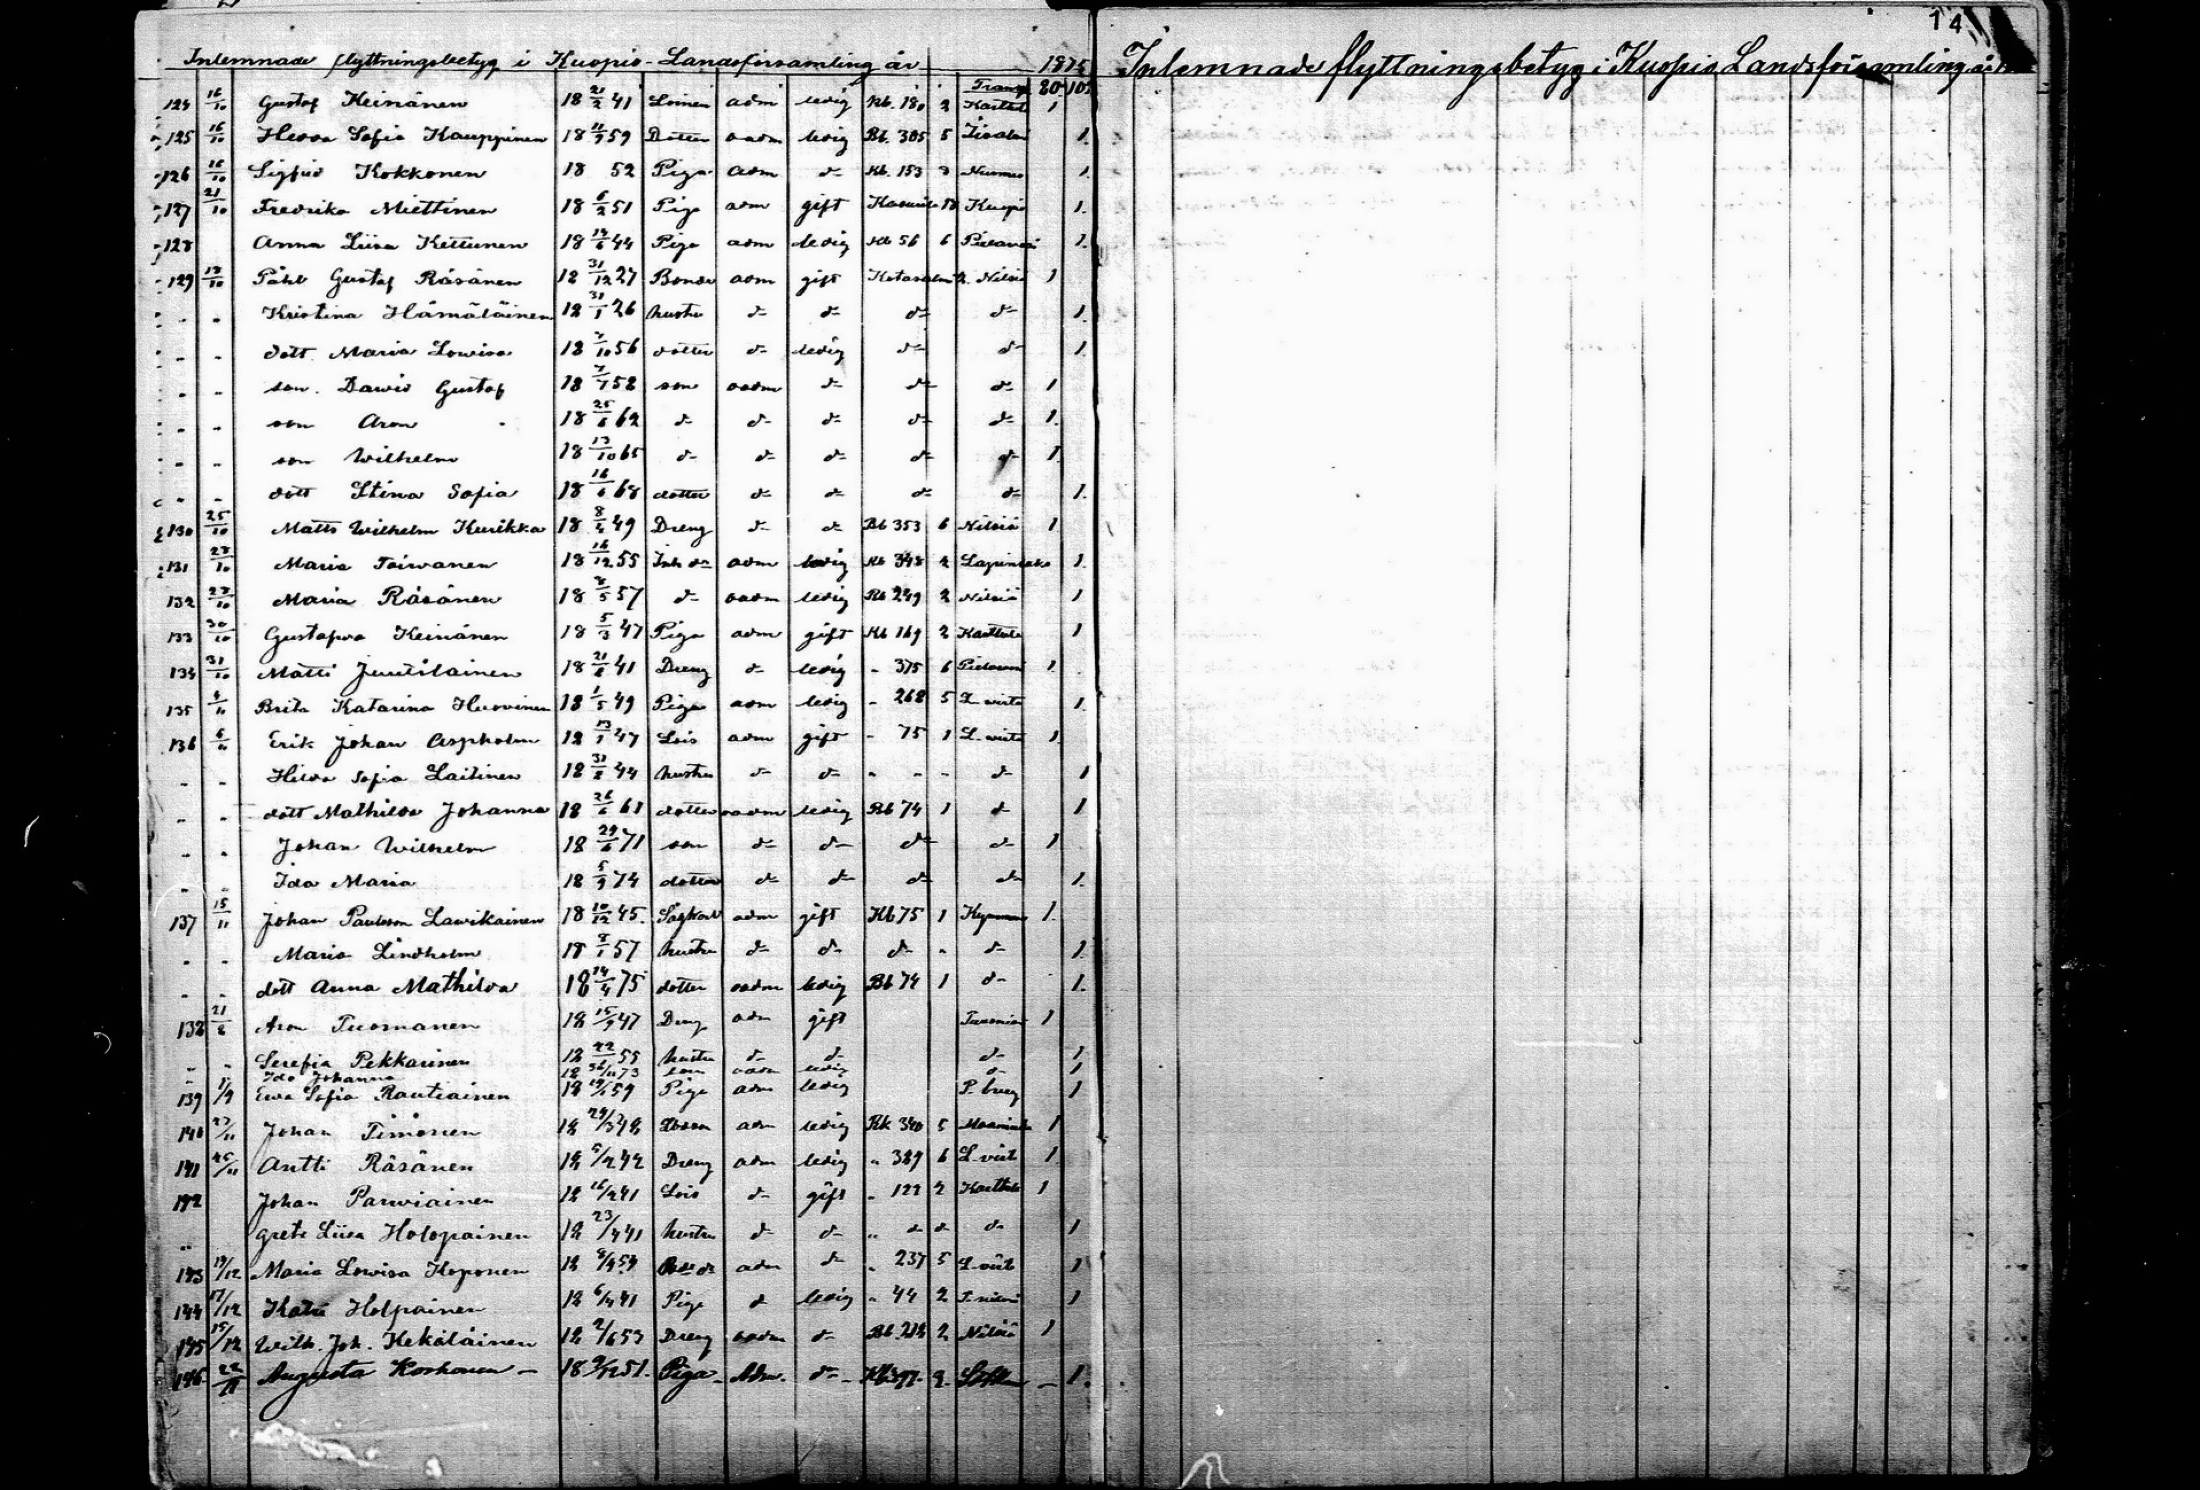 Inlemnade flyttningsbetyg i Kuopio Landsförsamling år 1875
Transp. 80 10
124 16/10 Gustaf Keinänen 18 21/2 41 Loinen adm ledig Kb. 180 2 Karttula 1
125 16/10 Hedda Sofia Kauppinen 18 59 Dotter oadm ledig Bb. 305 5 Iisalmi 1.
126 16/10 Sigfrid Kokkonen 18 52 Piga adm d:o Kb. 153 1.
127 21/10 Fredrika Miettinen 18 6/2 51 Piga adm gift Kuopio 1.
128 Anna Liisa Kettunen 18 44 Piga adm ledig Kb 56 6 Pielavesi 1.
129 Påhl Gustaf Räsänen 18 31/12 27 Bonde adm gift Kotasalmi 2. Nilsiä 1
" " Kristina Hämäläinen 18 31/1 26 hustru d:o d:o d:o d:o 1.
" " dott. Maria Lowisa 18 7/10 56 dotter d:o ledig d:o d:o 1.
" " son. Dawid Gustaf 18 58 son oadm d:o d:o d:o 1
" " son Aron 18 62 d:o d:o d:o d:o d:o 1.
" " son Wilhelm 18 13/10 65 d:o d:o d:o d:o d:o 1.
" " dott Stina Sofia 18 16/6 68 dotter d:o d:o d:o d:o 1.
130 25/10 Matts Wilhelm Kurikka 18 8/4 49 Dreng d:o d:o Bb 353 6 Nilsiä 1
131 27/10 Maria Toiwanen 18 16/12 55 Inh dr adm ledig Kb 348 2 Lapinlaks 1.
132 27/10 Maria Räsänen 18 57 d:o oadm ledig Bb 249 2 Nilsiä 1
133 30/10 Gustafva Keinänen 18 5/3 47 Piga adm gift Kb 169 2 Karttula 1
134 31/10 Matti Juutilainen 18 41 Dreng d:o ledig " 375 6 Pielavesi 1.
135 4/11 Brita Katarina Huovinen 18 1/5 49 Piga adm ledig " 268 5 L. wirta 1.
136 6/11 Erik Johan Aspholm 18 13/1 47 Lois adm gift " 75 1 L. wirta 1.
" " Hedda Sofia Laitinen 18 44 hustru d:o d:o " " " d:o 1
" " dott Mathilda Johanna 18 26/6 61 dotter oadm ledig Bb 74 1 d:o 1
" " Johan Wilhelm 18 29/6 71 son d:o d:o d:o d:o 1
" " Ida Maria 18 5/9 74 dotter d:o d:o d:o d:o 1.
137 15/11 Johan Paulsson Lawikainen 18 10/12 45. adm gift Kb 75 1 1.
" " Maria Lindholm 18 57 hustru d:o d:o d:o " d:o 1.
" " dott Anna Mathilda 18 14/4 75 dotter oadm ledig Bb 74 1 d:o 1.
138 Aron Tuomanen 18 15/9 47 Dreng adm gift Tuusniemi 1
" " Serefia Pekkarinen 18 55 hustru d:o d:o d:o 1
" " Ida Johanna 73 oadm ledig d:o 1
139 1/9 Ewa Sofia Rautiainen 18 59 Piga adm ledig P. burg 1
140 27/11 Johan Timonen 18 29/3 48 adm ledig Kb 340 5 Maaninka 1
141 Antti Räsänen 18 5/2 42 Dreng adm ledig " 389 6 L. virt 1
142 Johan Parwiainen 18 16/2 41 Lois d:o gift " 122 2 Karttula 1
" Greta Liisa Holopainen 18 23/4 41 hustru d:o d:o " d:o d:o d:o 1
143 14/12 Maria Lowisa Koponen 18 adm d:o " 237 5 L. virt 1
144 17/12 Katri Holpainen 18 6/4 41 Piga d:o ledig " 44 2 1
145 15/12 Wilh. Joh. Kekäläinen 18 2/6 53 Dreng oadm d:o Bb 212 2 Nilsiä 1
146. 22/11 Augusta Korhonen – 18 51. Piga – Adm. d:o – Kb 397. 2. – 1.
14
Inlemnade flyttningsbetyg i Kuopio Landsförsamling år